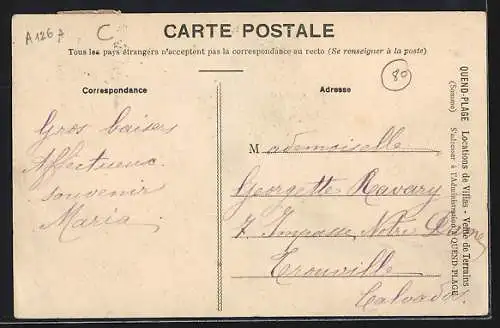 A 126 7
C
CARTE POSTALE
Tous les pays étrangers n'acceptent pas la correspondance au recto (Se renseigner à la poste)
80
Correspondance
Gros baisers
Affectueux
souvenir
Maria
Adresse
Mademoiselle
Georgette Ravary
7. Impasse Notre Dame
Trouville
Calvados.
QUEND-PLAGE Locations de Villas - Vente de Terrains
(Somme) S'adresser à l'Administration, QUEND-PLAGE